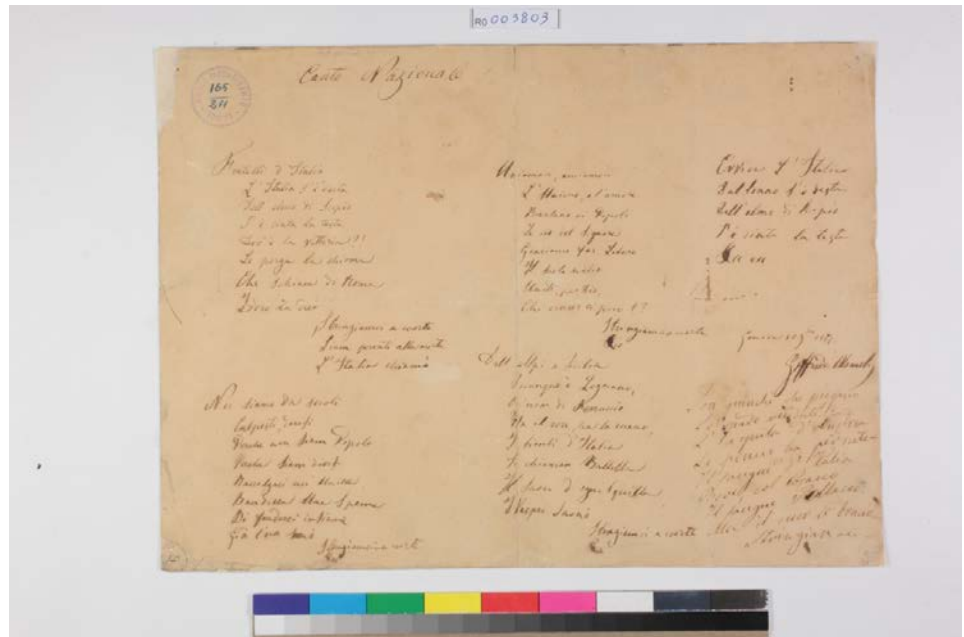 RO 003803
165
Canto Nazionale
Fratelli d'Italia
L'Italia s'è desta
Dell'elmo di Scipio
S'è cinta la testa
Dov'è la vittoria?!
Le porga la chioma
Che schiava di Roma
Iddio la creò
Stringiamci a coorte
Siam pronti alla morte
L'Italia chiamò
Noi siamo da secoli
Calpesti, derisi
Perché non siam Popolo
Perché siam divisi
Raccolgaci un'unica
Bandiera una Speme
Di fonderci insieme
Già l'ora suonò
Stringiamci a coorte
Uniamoci, amiamoci
L'Unione, e l'amore
Rivelano ai Popoli
Le vie del Signore
Giuriamo far Libero
Il suolo natio
Uniti, per Dio,
Chi vincer ci può?
Stringiamci a coorte
Dall'Alpi a Sicilia
Dovunque è Legnano,
Ogn'uom di Ferruccio
Ha il core, ha la mano,
I bimbi d'Italia
Si chiaman Balilla
Il suon d'ogni squilla
I Vespri suonò
Stringiamci a coorte
Evviva l'Italia
Dal sonno s'è desta
Dell'elmo di Scipio
S'è cinta la testa
Genova
Goffredo Mameli
Son giunchi che piegano
Le spade vendute
L'Aquila d'Austria
Le penne ha perdute
Il sangue d'Italia
Bevé col Cosacco
Il sangue Polacco
Ma il cuor le bruciò
Stringiamci